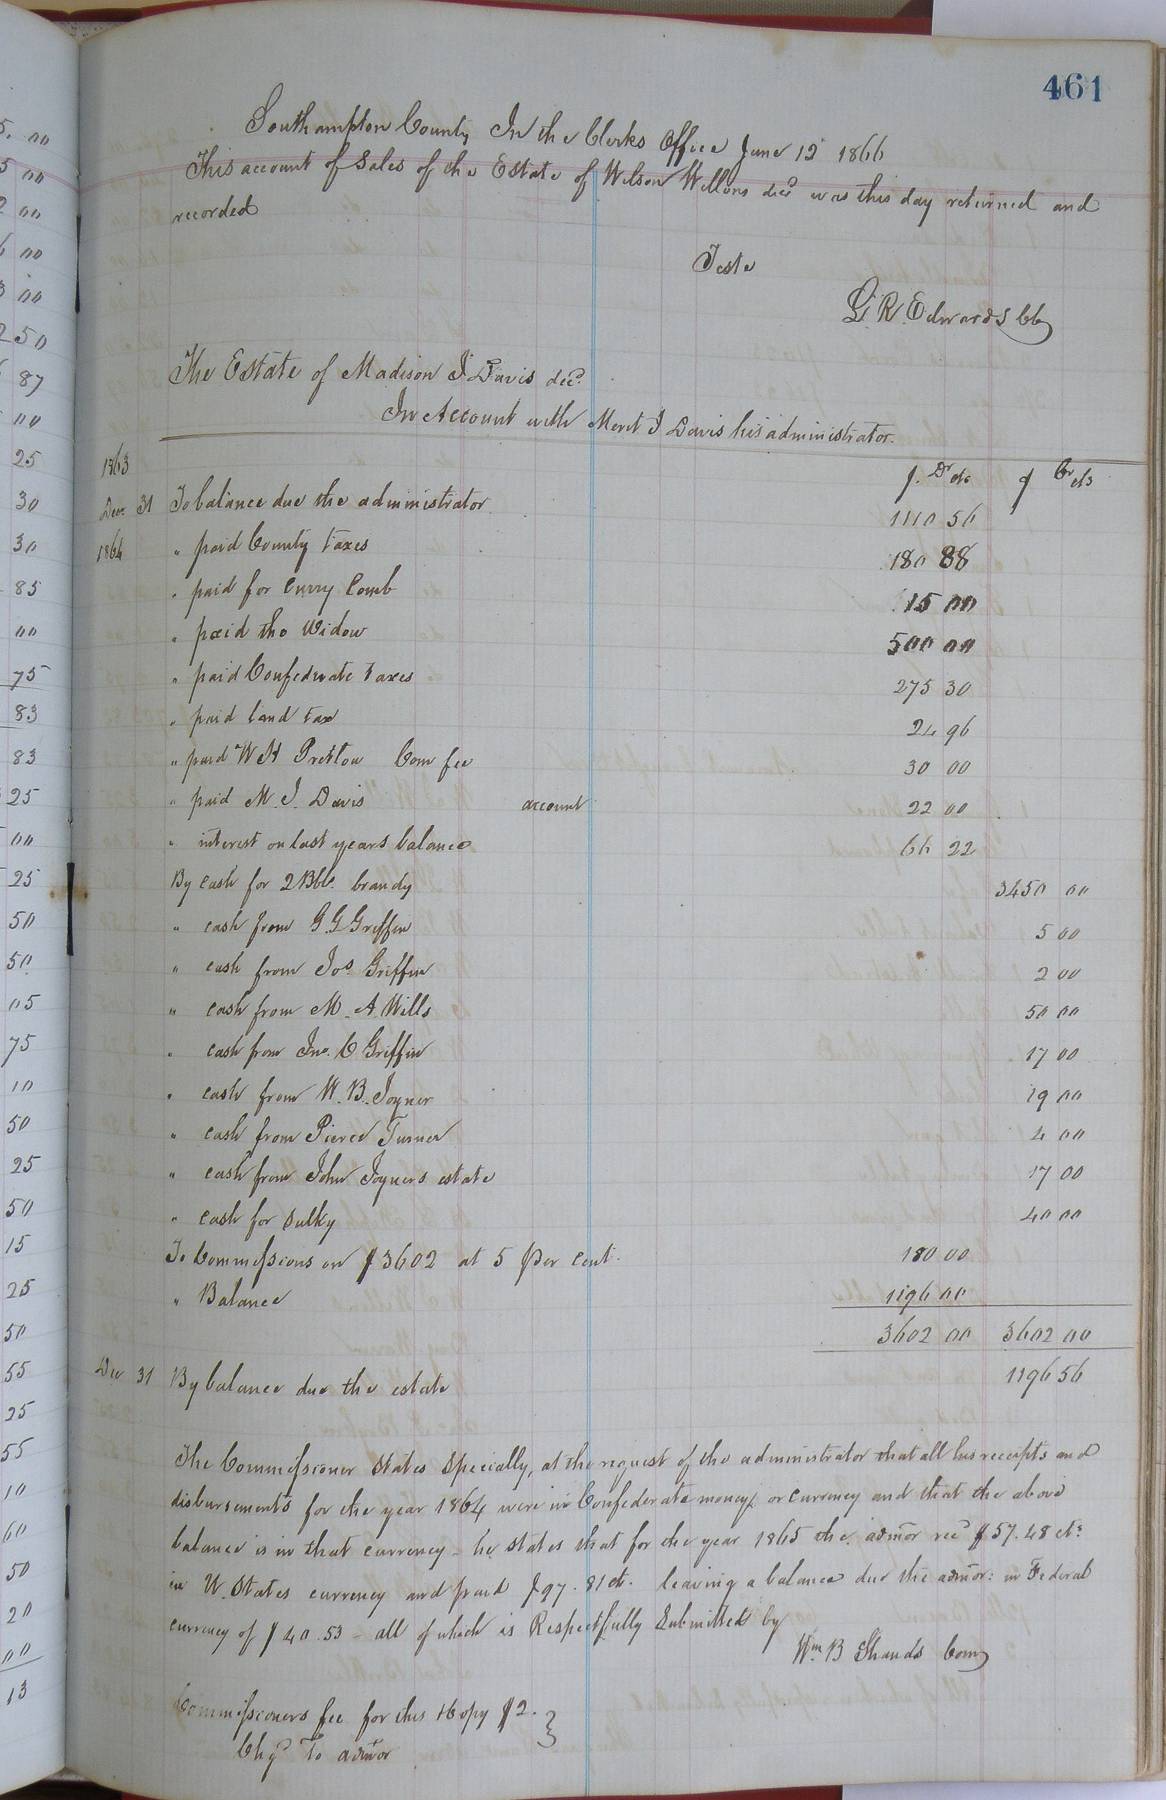 461
Southampton County In the Clerks Office June 12 1866
This account of Sales of the Estate of Wilson Willons decd was this day returned and
recorded
Teste
L. R. Edwards CC
The Estate of Madison J Davis decd.
In Account with Merit J Davis his administrator.
1863 $ Dr cts $ Cr cts
Decr 31 To balance due the administrator 1110 56
1864 " paid County taxes 180 88
" paid for Curry Comb 15 00
" paid the Widow 500 00
" paid Confederate taxes 275 30
" paid land tax 24 96
" paid W H Pretlow Com fee 30 00
" paid M. J. Davis account 22 00
" interest on last years balance 66 22
By cash for 2 Bbls. brandy 3450 00
" cash from G. G Griffin 5 00
" cash from Jos Griffin 2 00
" cash from M. A. Wills 50 00
" cash from Jno. C Griffin 17 00
" cash from W. B. Joyner 19 00
" cash from Pierce Turner 2 00
" cash from John Joyners estate 17 00
" cash for Sulky 40 00
To Commissions on $3602 at 5 per cent. 180 00
" Balance 1196 00
3602 00 3602 00
Dec 31 By balance due the estate 1196 56
The Commissioner States Specially, at the request of the administrator that all his receipts and
disbursements for the year 1864 were in Confederate money or currency and that the above
balance is in that currency - he states that for the year 1865 the admor recd $57.48 cts
in U. States currency and paid $97.81 cts. leaving a balance due the admor: in Federal
currency of $40.53 - all of which is Respectfully Submitted by
Wm. B Shands Com
Commissioners fee for this & Copy $2.
Chgd To admor
5. 00
5 00
2 00
6 00
3 00
2 50
87
00
25
30
30
85
00
75
83
83
25
00
25
50
50
05
75
10
50
25
50
15
25
50
55
25
55
10
60
50
20
00
13